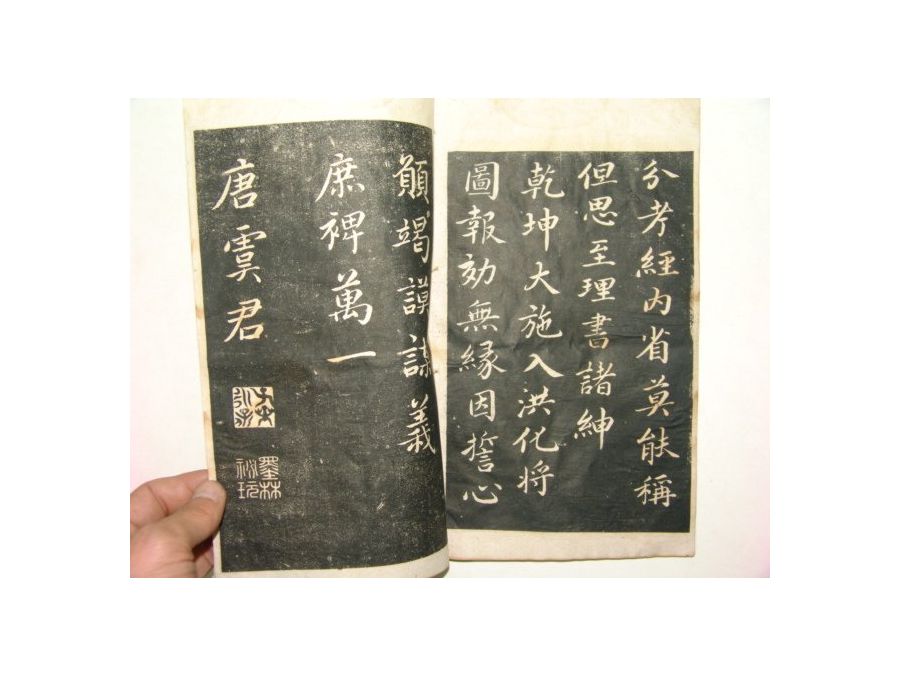 分考經内省莫能稱
但思至理書諸紳
乾坤大施入洪化将
圖報効無縁因誓心
顛竭謨謀義
庶裨萬一
唐虞君
墨林
祕玩